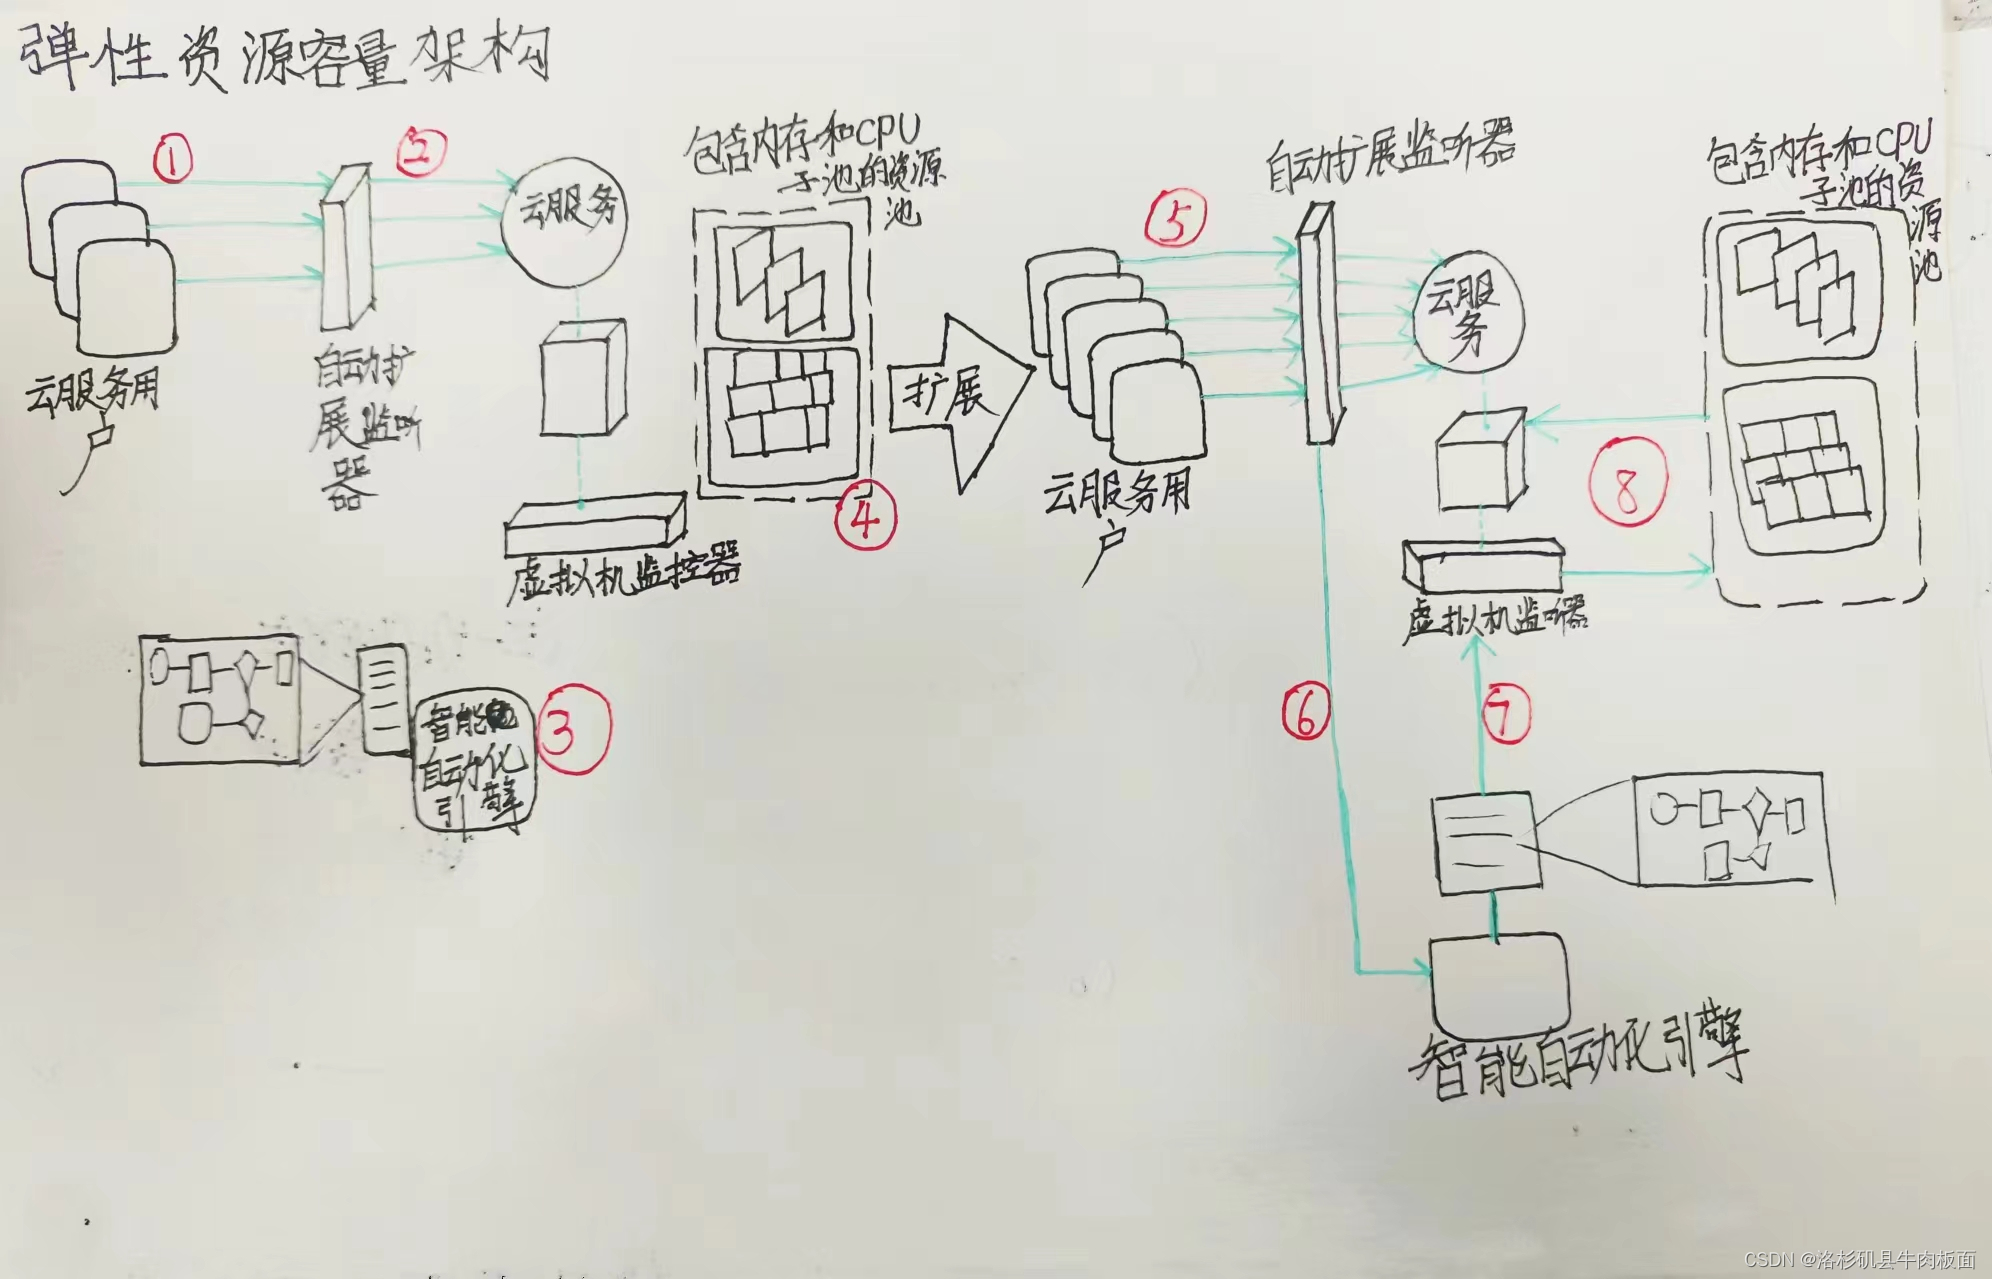 弹性资源容量架构
①
②
云服务用
户
自动扩
展监听
器
云服务
虚拟机监控器
包含内存和CPU
子池的资源
池
④
智能
自动化
引擎
③
扩展
⑤
云服务用
户
自动扩展监听器
云服
务
虚拟机监听器
包含内存和CPU
子池的资
源
池
⑧
⑥
⑦
智能自动化引擎
CSDN @洛杉矶县牛肉板面